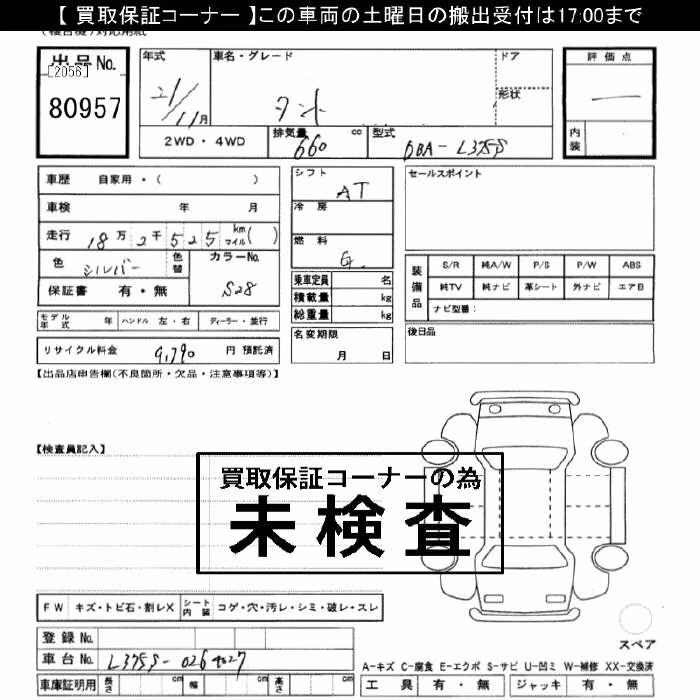 【 買取保証コーナー 】この車両の土曜日の搬出受付は17:00まで
出品No.
[2056]
80957
年式
21/11月
車名・グレード
タント
ドア
形状
評価点
内装
2WD・4WD
排気量 660 cc
型式 DBA-L375S
車歴 自家用・( )
車検 年 月
走行 18万2千525 km マイル( )
色 シルバー 色替
カラーNo. S28
保証書 有・無
シフト AT
冷房
燃料 G
乗車定員 名
積載量 kg
総重量 kg
セールスポイント
装備品
S/R 純A/W P/S P/W ABS
純TV 純ナビ 革シート 外ナビ エアB
ナビ型番:
モデル年式 年 ハンドル 左・右 ディーラー・並行
名変期限 月 日
後日品
リサイクル料金 9,790 円 預託済
【出品店申告欄(不良箇所・欠品・注意事項等)】
【検査員記入】
買取保証コーナーの為
未検査
FW キズ・トビ石・割レX シート内装 コゲ・穴・汚レ・シミ・破レ・スレ
登録No.
車台No. L375S-0264027
車庫証明用 長さ cm 幅 cm 高さ cm
スペア
A-キズ C-腐食 E-エクボ S-サビ U-凹ミ W-補修 XX-交換済
工具 有・無 ジャッキ 有・無